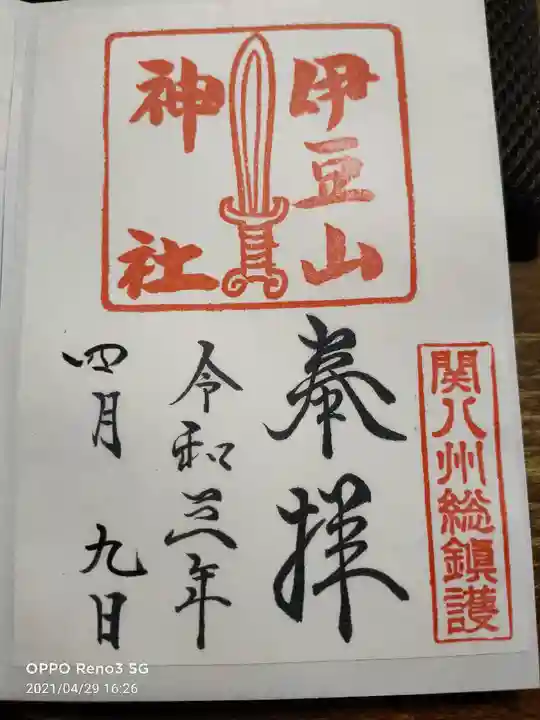 伊豆山
神社
関八州総鎮護
奉拝
令和三年
四月九日
OPPO Reno3 5G
2021/04/29 16:26